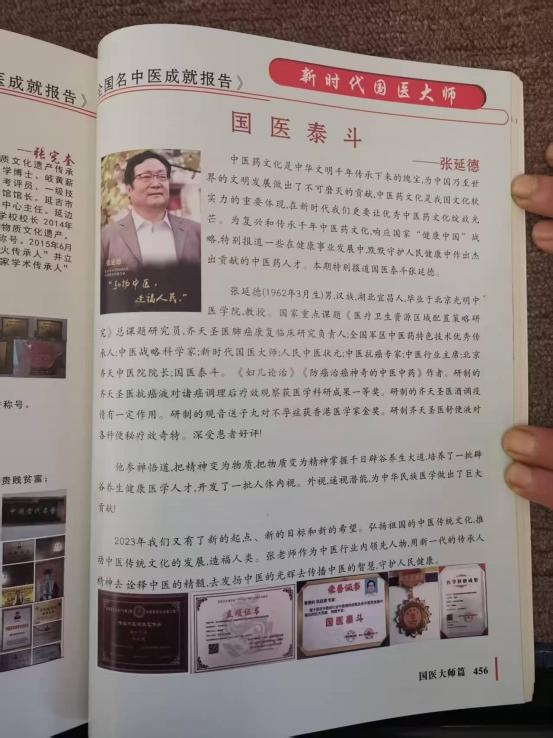 医成就报告》
——张完奎
质文化遗产传承
学博士、岐黄薪
考评员、一级技
馆馆长。延吉市
中心主任。延边
学校校长 2014年
物质文化遗产。
称号。2015年6月
火传承人”并立
家学术传承人”
称号。
贵贱贫富；
全国名中医成就报告》
新时代国医大师
国医泰斗
——张延德
中医药文化是中华文明千年传承下来的瑰宝,为中国乃至世
界的文明发展做出了不可磨灭的贡献,中医药文化是我国文化软
实力的重要体现,在新时代我们更要让优秀中医药文化绽放光
芒。为复兴和传承千年中医药文化,响应国家“健康中国”战
略,特别报道一些在健康事业发展中,默默守护人民健康中作出杰
出贡献的中医药人才。本期特别报道国医泰斗张延德。
张延德
“弘扬中医,
造福人民。”
张延德(1962年3月生)男,汉族,湖北宜昌人,毕业于北京光明中
医学院,教授。国家重点课题《医疗卫生资源区域配置策略研
究》总课题研究员,齐天圣医肺癌康复临床研究负责人;全国军区中医药特色技术优秀传
承人;中医战略科学家;新时代国医大师;人民中医状元;中医抗癌专家;中医行业主席;北京
齐天中医院院长;国医泰斗。《妇儿论治》《防癌治癌神奇的中医中药》作者。研制的
齐天圣医抗癌液对诸癌调理后疗效观察获医学科研成果一等奖。研制的齐天圣医酒调疫
情有一定作用。研制的观音送子丸对不孕症获香港医学家金奖。研制齐天圣医舒便液对
各种便秘疗效奇特。深受患者好评!
他参禅悟道,把精神变为物质,把物质变为精神掌握千日辟谷养生大道,培养了一批辟
谷养生健康医学人才,开发了一批人体内视。外视,遥视潜能,为中华民族医学做出了巨大
贡献!
2023年我们又有了新的起点、新的目标和新的希望。弘扬祖国的中医传统文化,推
动中医传统文化的发展,造福人类。张老师作为中医行业内领先人物,用新一代的传承人
精神去 诠释中医的精髓,去发扬中医的光辉去传播中医的智慧,守护人民健康。
荣誉证书
国医泰斗
医学科研成果
国医大师篇 456